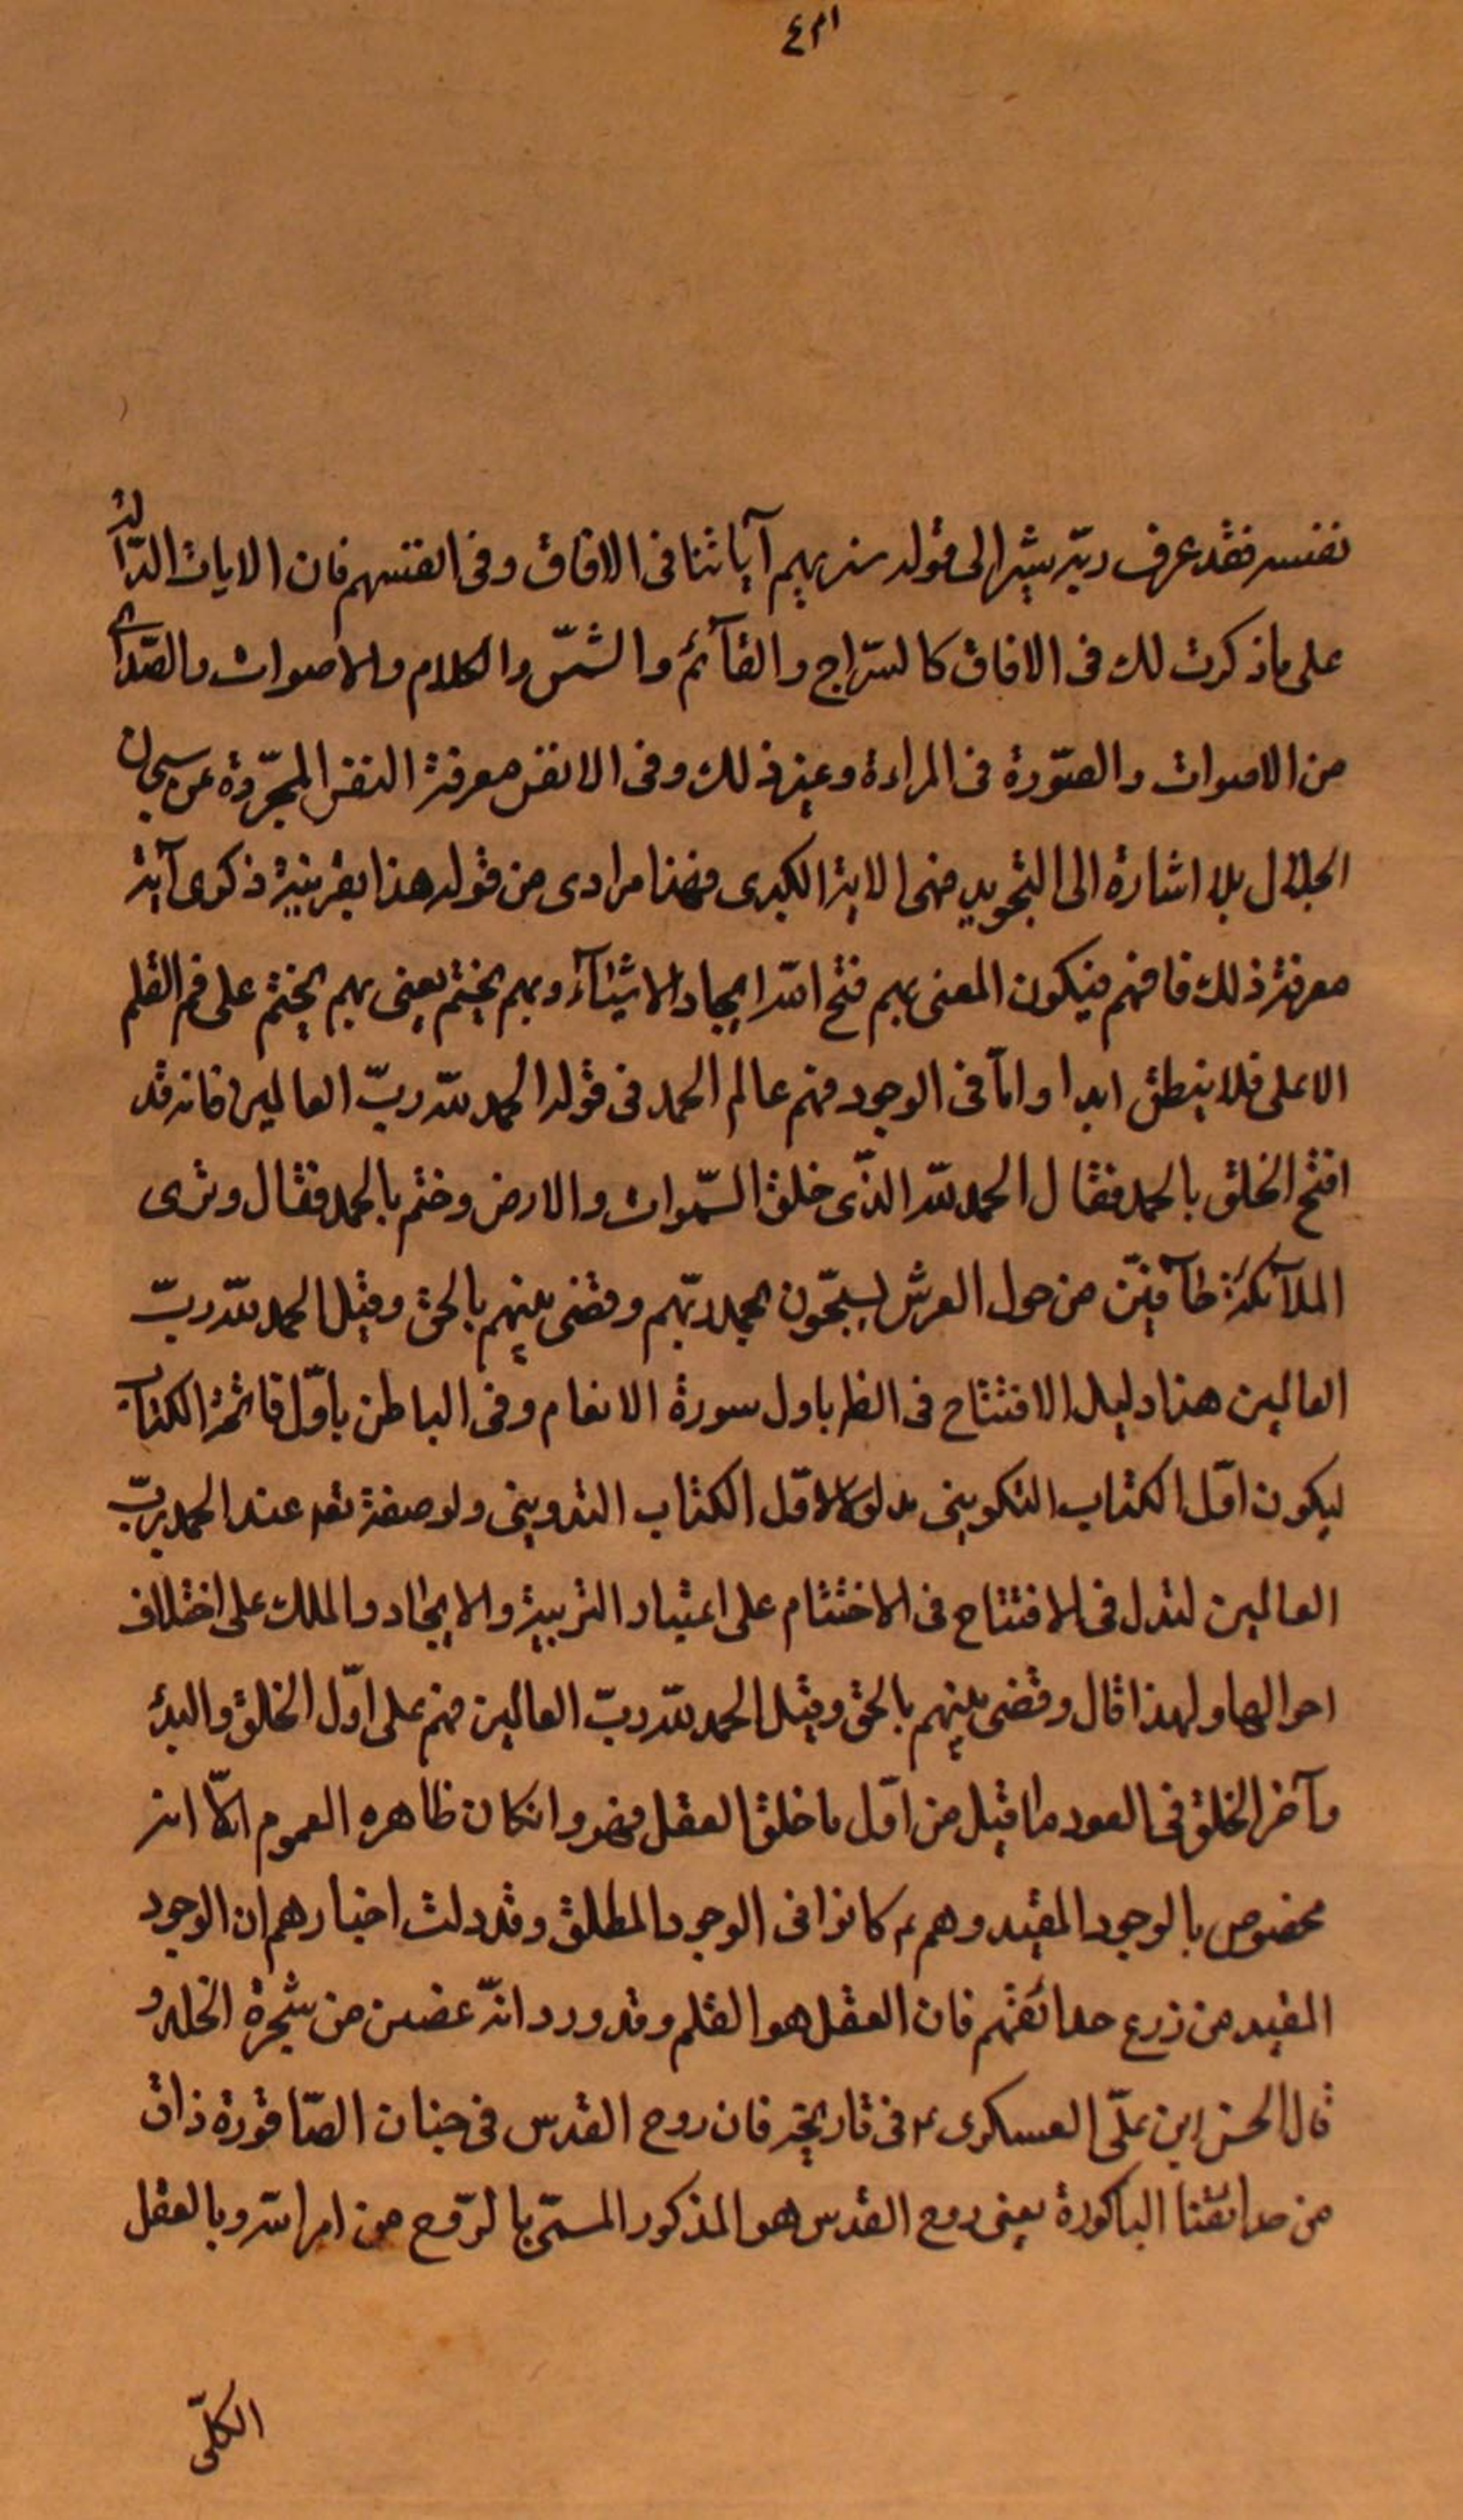 ٤٣١
نفسه فقد عرف ربّه يشير الى قوله سنريهم آياتنا فى الافاق وفى انفسهم فان الايات الدّالّة
على ما ذكرت لك فى الافاق كالسّراج والقآئم والشمّس والكلام والاصوات والصّداى
من الاصوات والصّورة فى المراءة وغير ذلك وفى الانفس معرفة النفس المجرّدة عن سبحات
الجلال بلا اشارة الى التجريد فهى الاية الكبرى فهذا مرادى من قوله هذا بقرينة ذكرى آية
معرفة ذلك فافهم فيكون المعنى بهم فتح الله ايجاد الاشيآء وبهم يختم يعنى بهم يختم على فم القلم
الاعلى فلا ينطق ابدا وامّا فى الوجود فهم عالم الحمد فى قوله الحمد لله ربّ العالمين فانه قد
افتتح الخلق بالحمد فقال الحمد لله الذّى خلق السّموات والارض وختم بالحمد فقال وترى
الملآئكة حآفيّن من حول العرش يسبّحون بحمد ربّهم وقضى بينهم بالحق وقيل الحمد لله ربّ
العالمين هذا دليل الافتتاح فى الظ باول سورة الانعام وفى الباطن باوّل فاتحة الكتاب
ليكون اوّل الكتاب التكوينى مدلولا لاوّل الكتاب التدوينى ولوصفه تعه عند الحمد بربّ
العالمين لتدل فى الافتتاح فى الاختتام على اعتبار التربية والايجاد والملك على اختلاف
احوالها ولهذا قال وقضى بينهم بالحق وقيل الحمد لله ربّ العالمين فهم على اوّل الخلق والبدء
وآخر الخلق فى العود وما قيل من اوّل ما خلق العقل فهو وانكان ظاهره العموم الاّ انه
مخصوص بالوجود المقيد وهم ع كانوا فى الوجود المطلق وقد دلت اخبارهم ان الوجود
المقيد من زرع حدائقهم فان العقل هو القلم وقد ورد انّه غصن من شجرة الخلد و
قال الحسن ابن علىّ العسكرى ع فى تاريخه فان روح القدس فى جنان الصّاقورة ذاق
من حدائقنا الباكورة يعنى روح القدس هو المذكور المسمّى بالرّوح من امر الله وبالعقل
الكلّى